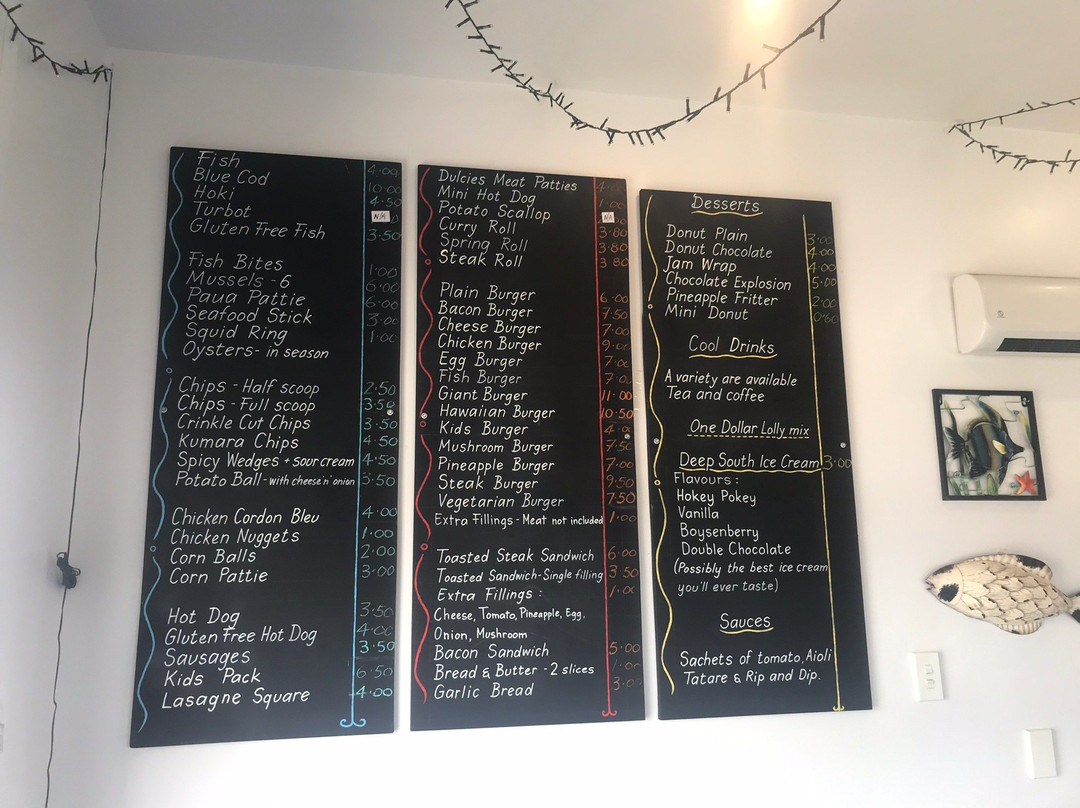 Fish 4.00
Blue Cod 10.00
Hoki 4.50
Turbot N/A
Gluten Free Fish 3.50
Fish Bites 1.00
Mussels - 6 6.00
Paua Pattie 6.00
Seafood Stick 3.00
Squid Ring 1.00
Oysters - in season
Chips - Half scoop 2.50
Chips - Full scoop 3.50
Crinkle Cut Chips 3.50
Kumara Chips 4.50
Spicy Wedges + sour cream 4.50
Potato Ball - with cheese 'n' onion 3.50
Chicken Cordon Bleu 4.00
Chicken Nuggets 1.00
Corn Balls 2.00
Corn Pattie 3.00
Hot Dog 3.50
Gluten Free Hot Dog 4.00
Sausages 3.50
Kids Pack 6.50
Lasagne Square 4.00
Dulcies Meat Patties 4.00
Mini Hot Dog 1.00
Potato Scallop N/A
Curry Roll 3.80
Spring Roll 3.80
Steak Roll 3.80
Plain Burger 6.00
Bacon Burger 7.50
Cheese Burger 7.00
Chicken Burger 9.00
Egg Burger 7.00
Fish Burger 7.00
Giant Burger 11.00
Hawaiian Burger 10.50
Kids Burger 4.00
Mushroom Burger 7.50
Pineapple Burger 7.00
Steak Burger 9.50
Vegetarian Burger 7.50
Extra Fillings - Meat not included 1.00
Toasted Steak Sandwich 6.00
Toasted Sandwich - Single filling 3.50
Extra Fillings : 1.00
Cheese, Tomato, Pineapple, Egg,
Onion, Mushroom
Bacon Sandwich 5.00
Bread & Butter - 2 slices 1.00
Garlic Bread 3.0
Desserts
Donut Plain 3.00
Donut Chocolate 4.00
Jam Wrap 4.00
Chocolate Explosion 5.00
Pineapple Fritter 2.00
Mini Donut 0.80
Cool Drinks
A variety are available
Tea and coffee
One Dollar Lolly mix
Deep South Ice Cream 3.00
Flavours :
Hokey Pokey
Vanilla
Boysenberry
Double Chocolate
(Possibly the best ice cream
you'll ever taste)
Sauces
Sachets of tomato, Aioli
Tatare & Rip and Dip.